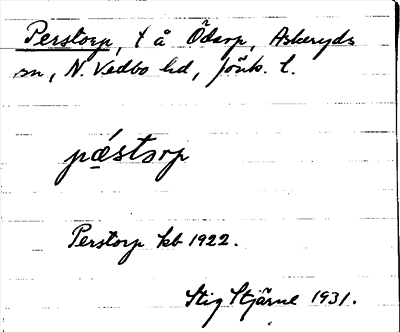 Perstorp, t å Ödarp, Askeryds
sn, N. Vedbo hd, Jönk. l.
pǽstorp
Perstorp kb 1922.
Stig Stjärne 1931.